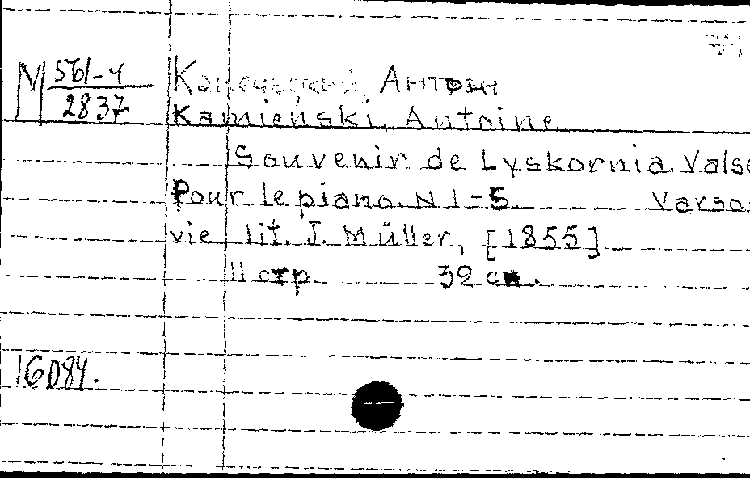 М 561-4
2837
Каменьский, Антон
Kamieński, Antoine
Souvenir de Lyskornia. Valse
Pour le piano. N 1-5. Varso-
vie lit. J. Müller, [1855]
11 стр. 32 см.
16084.